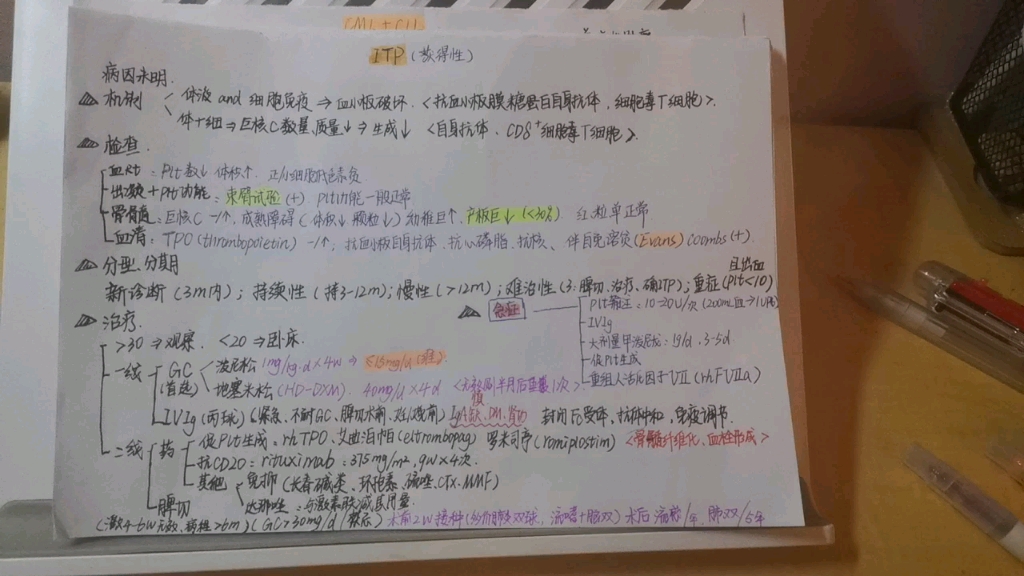 CML+CLL
ITP (获得性)
病因未明.
机制 体液 and 细胞免疫 ⇒ 血小板破坏. <抗血小板膜糖蛋白自身抗体, 细胞毒T细胞>.
体+细 ⇒ 巨核C数量 质量↓ → 生成↓ <自身抗体、CD8+细胞毒T细胞>.
检查.
血Rt: Plt数↓ 体积↑. 正/小细胞低色素贫
出凝 + Plt功能: 束臂试验 (+). Plt功能一般正常
骨骼: 巨核C -/↑, 成熟障碍 (体积↓ 颗粒↓) 幼稚巨↑, 产板巨↓ (<30%). 红粒单正常
血清: TPO (thrombopoietin) -/↑, 抗血小板自身抗体、抗心磷脂、抗核、伴自免溶贫 (Evans) coombs (+).
分型、分期
且出血
新诊断 (3m内); 持续性 (持3-12m); 慢性 (>12m); 难治性 (3: 脾切、治疗、确ITP); 重症 (Plt<10)
治疗.
急症
Plt输注: 10-20U/次 (200mL血→1U)
IVIg
大剂量甲泼尼龙: 1g/d . 3-5d
促Plt生成
重组人活化因子VII (rhFVIIa)
>30 ⇒ 观察. <20 ⇒ 卧床.
一线 (首选) GC 泼尼松 1mg/kg·d × 4w ⇒ ≤15mg/d (维)
地塞米松 (HD-DXM) 40mg/d × 4d <无效则半月后重复1次>
IVIg (丙球) (紧急、不耐GC、脾切术前 IgA 慎 DM 封闭Fc受体、抗体中和、免疫调节.
二线 药 促Plt生成: rhTPO、艾曲泊帕 (eltrombopag) 罗米司亭 (romiplostim) <骨髓纤维化、血栓形成>
抗CD20: rituximab: 375mg/m². qw × 4次.
其他 免抑 (长春碱类、环孢素、硫唑、CTX、MMF)
达那唑:
脾切
(激素4-6w无效、病程>6m) (GC>30mg/d) 术前2w接种 术后 流感/年 肺双/5年